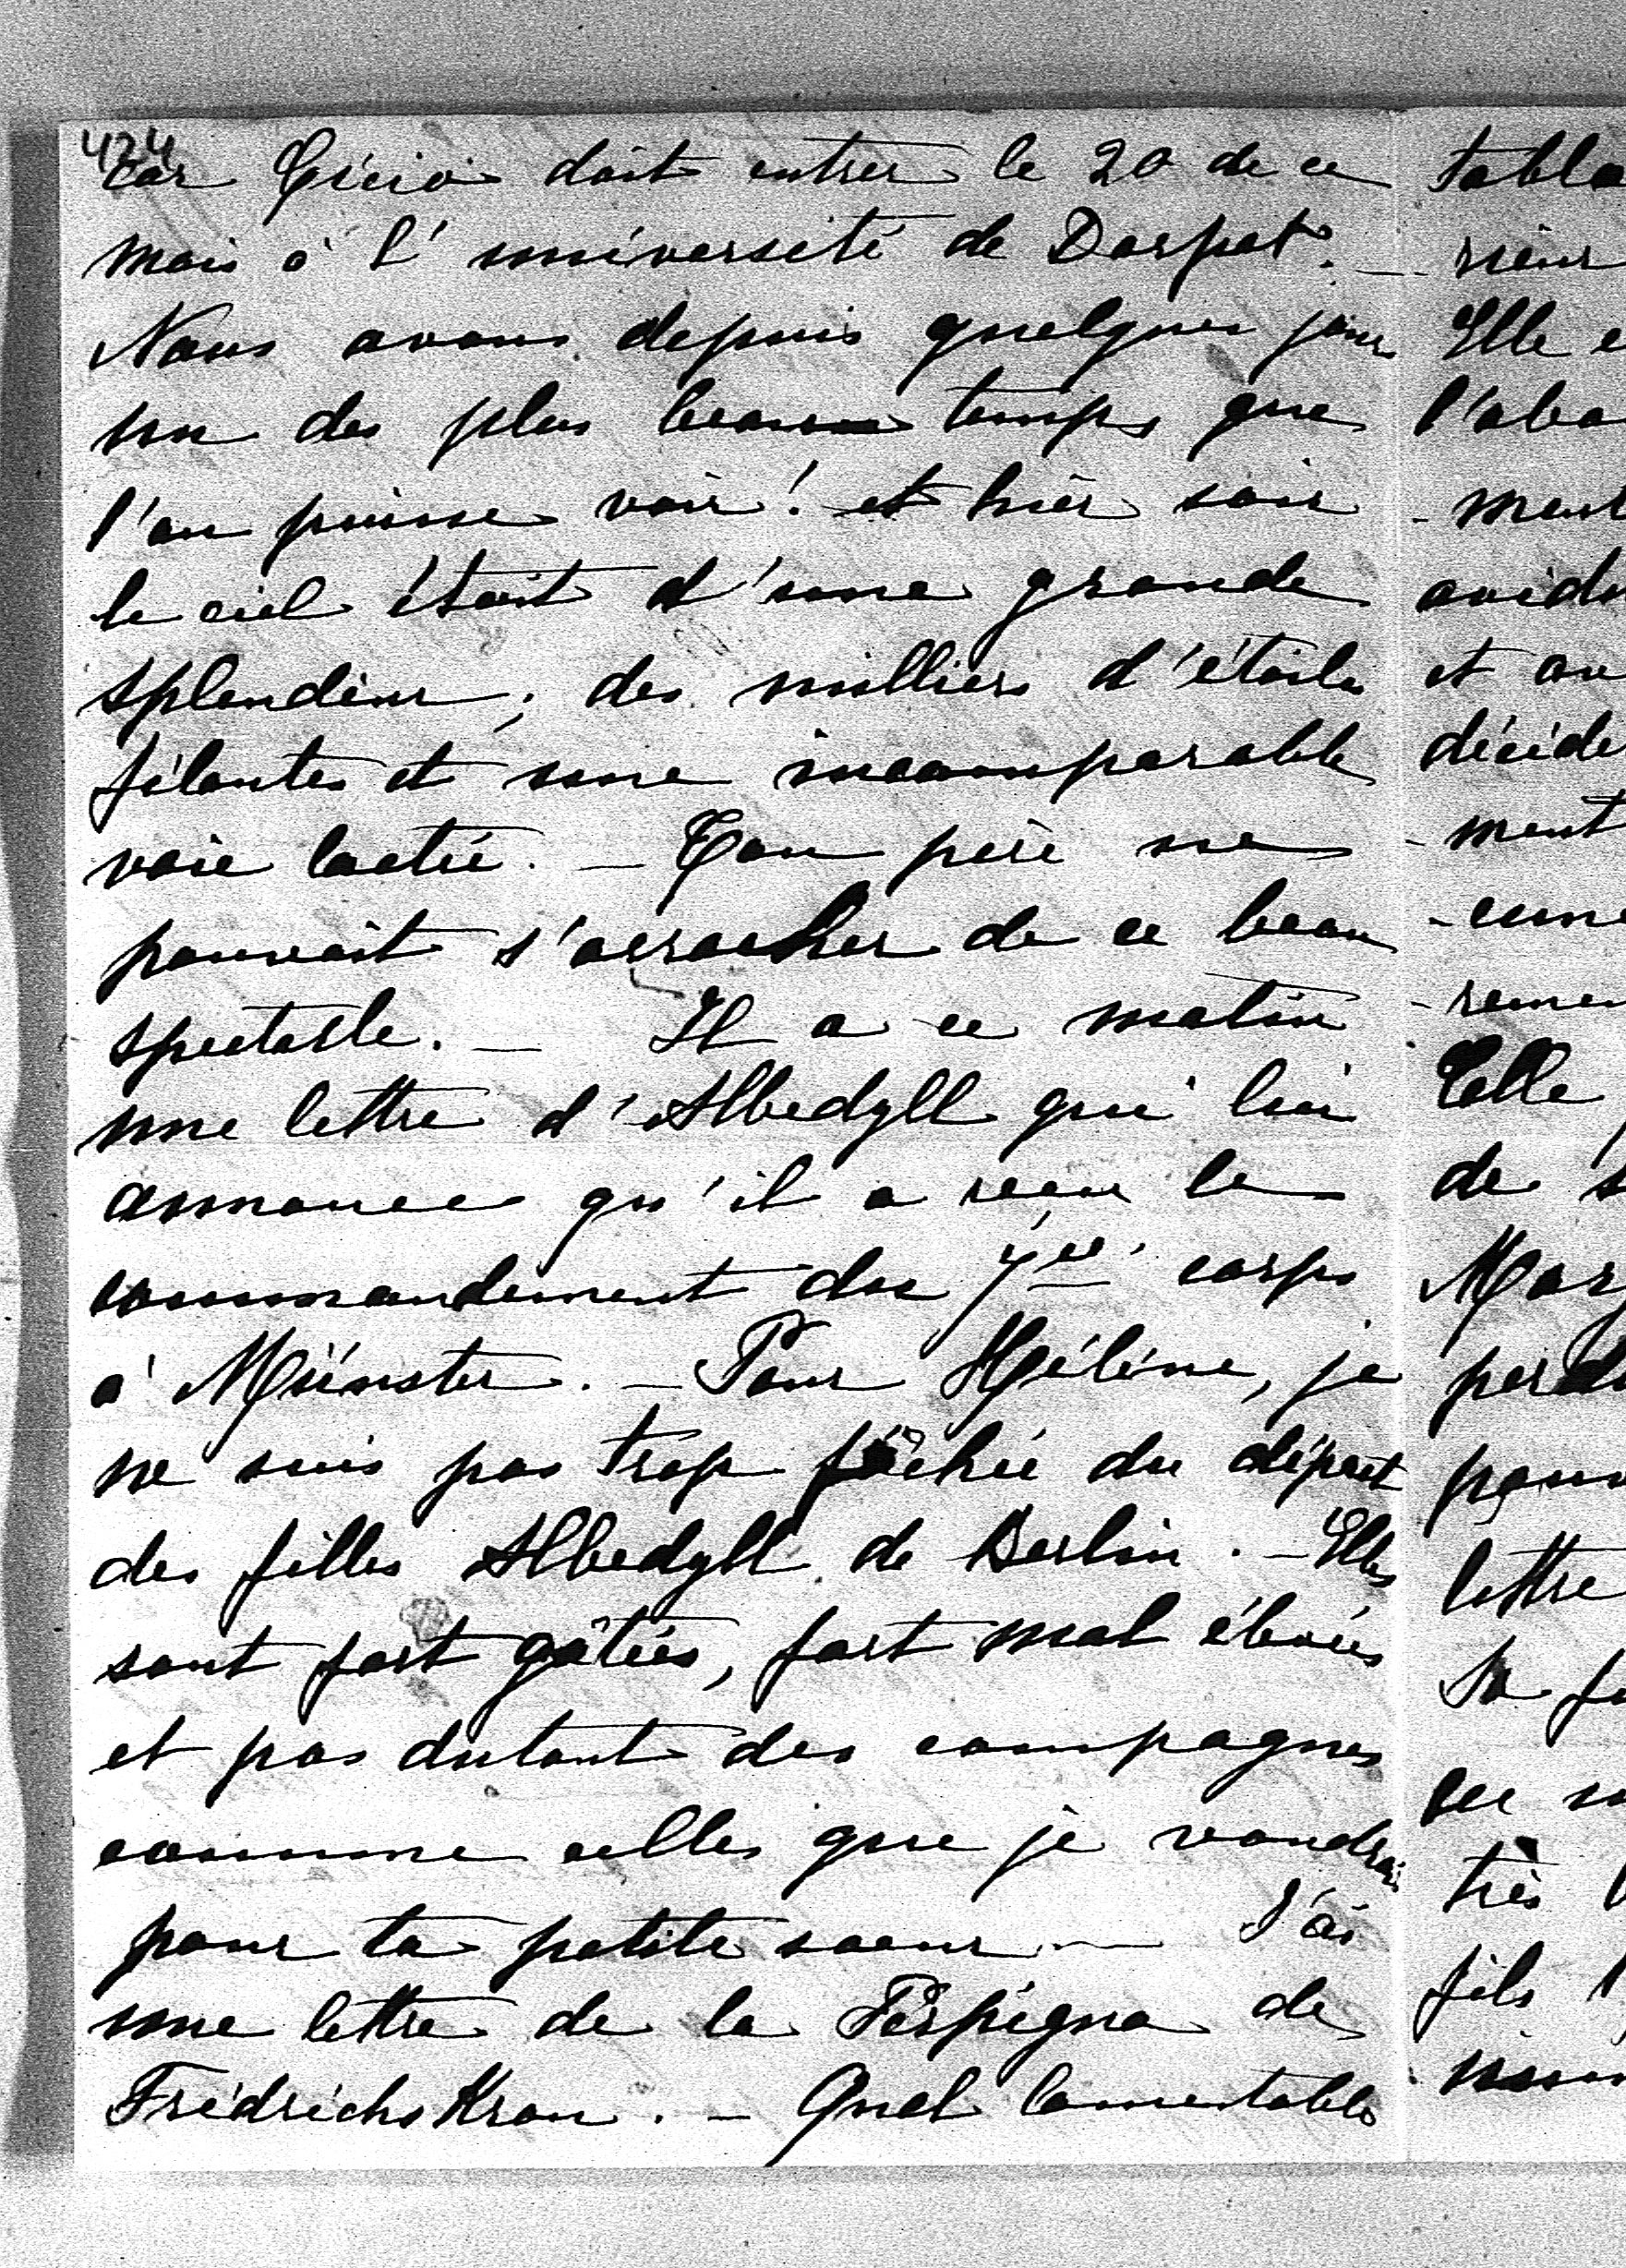 424
car doit entrer le 20 de ce
mois à l'université de Dorpat. —
Nous avons depuis quelques jours
un des plus beaux temps que
l'on puisse voir! et hier soir
le ciel était d'une grande
splendeur; des milliers d'étoiles
filantes et une incomparable
voie lactée. — Ton père ne
pouvait s'arracher de ce beau
spectacle. — Il a ce matin
une lettre d'Albedyll qui lui
annonce qu'il a reçu le
commandement du 7me corps
à Münster. — Pour Hélène, je
ne suis pas trop fâchée du départ
des filles Albedyll de Berlin. — Elles
sont fort gâtées, fort mal élevées
et pas du tout des compagnes
comme celles que je voudrais
pour ta petite soeur — J'ai
une lettre de la Perpigna de
Friedrichskron. — Quel lamentable
tabl
rieur
Elle e
l'aba
-ment
avid
et au
décide
-ment
Elle
de s
Mar
perd
pour
lettre
sa f
très
fils